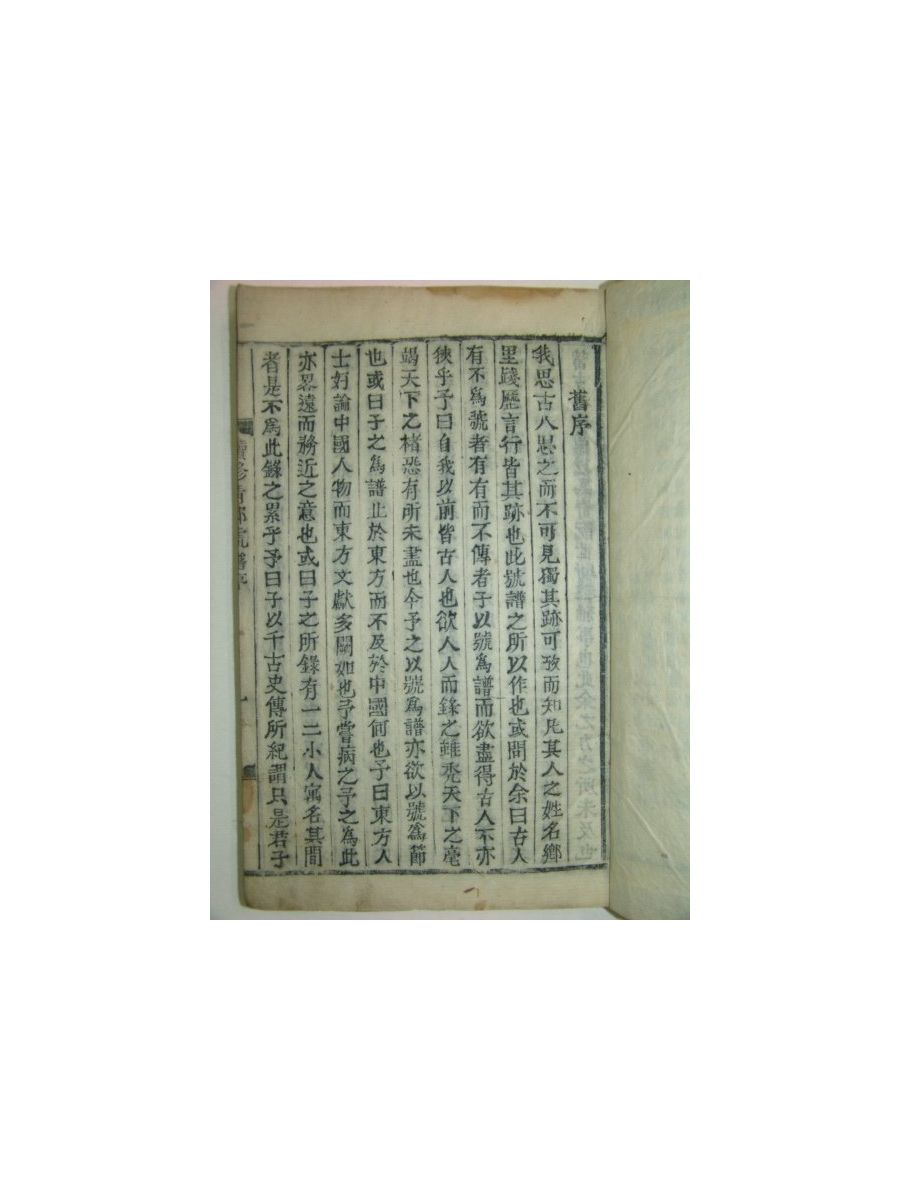 舊序
我思古人思之而不可見獨其跡可攷而知凡其人之姓名鄉
里踐歷言行皆其跡也此號譜之所以作也或問於余曰古人
有不爲號者有有而不傳者子以號爲譜而欲盡得古人不亦
狹乎予曰自我以前皆古人也欲人人而錄之雖禿天下之毫
竭天下之楮恐有所未盡也今予之以號爲譜亦欲以號爲節
也或曰子之爲譜止於東方而不及於中國何也予曰東方人
士好論中國人物而東方文獻多闕如也予嘗病之予之為此
亦畧遠而務近之意也或曰子之所錄有一二小人寓名其間
者是不爲此錄之累乎予曰子以千古史傳所紀謂只是君子